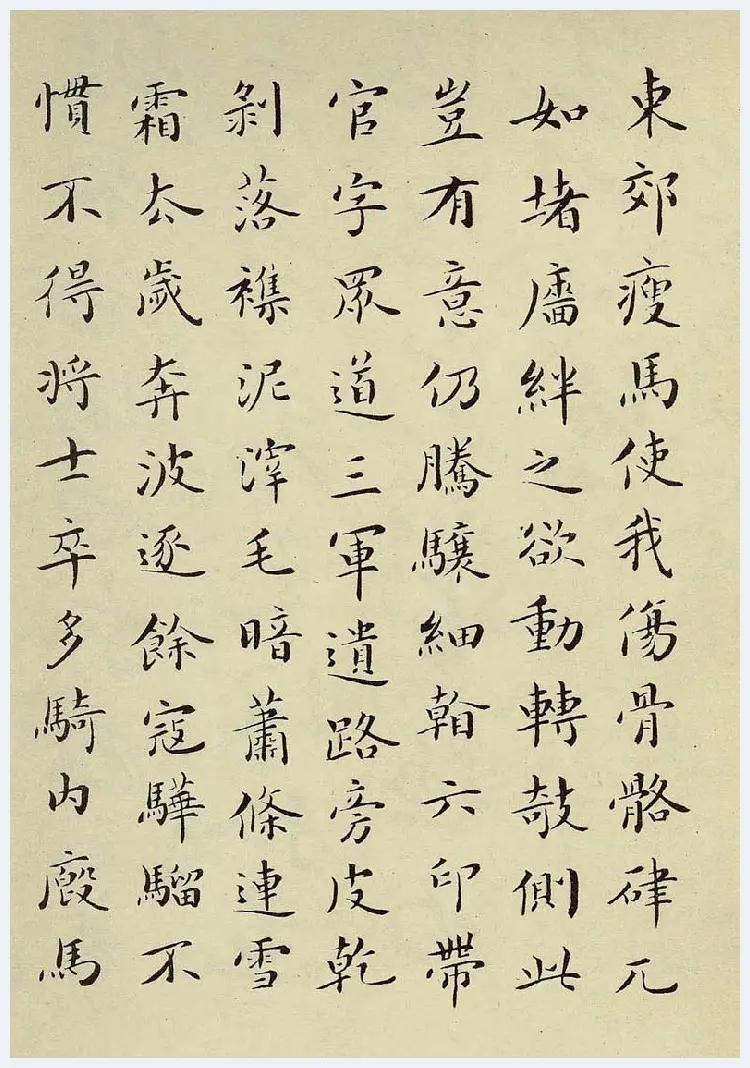 東郊瘦馬使我傷骨骼硉兀
如堵廧絆之欲動轉敧側此
豈有意仍騰驤細看六印帶
官字眾道三軍遺路旁皮乾
剝落襍泥滓毛暗蕭條連雪
霜去歲奔波逐餘寇驊騮不
慣不得將士卒多騎內廄馬